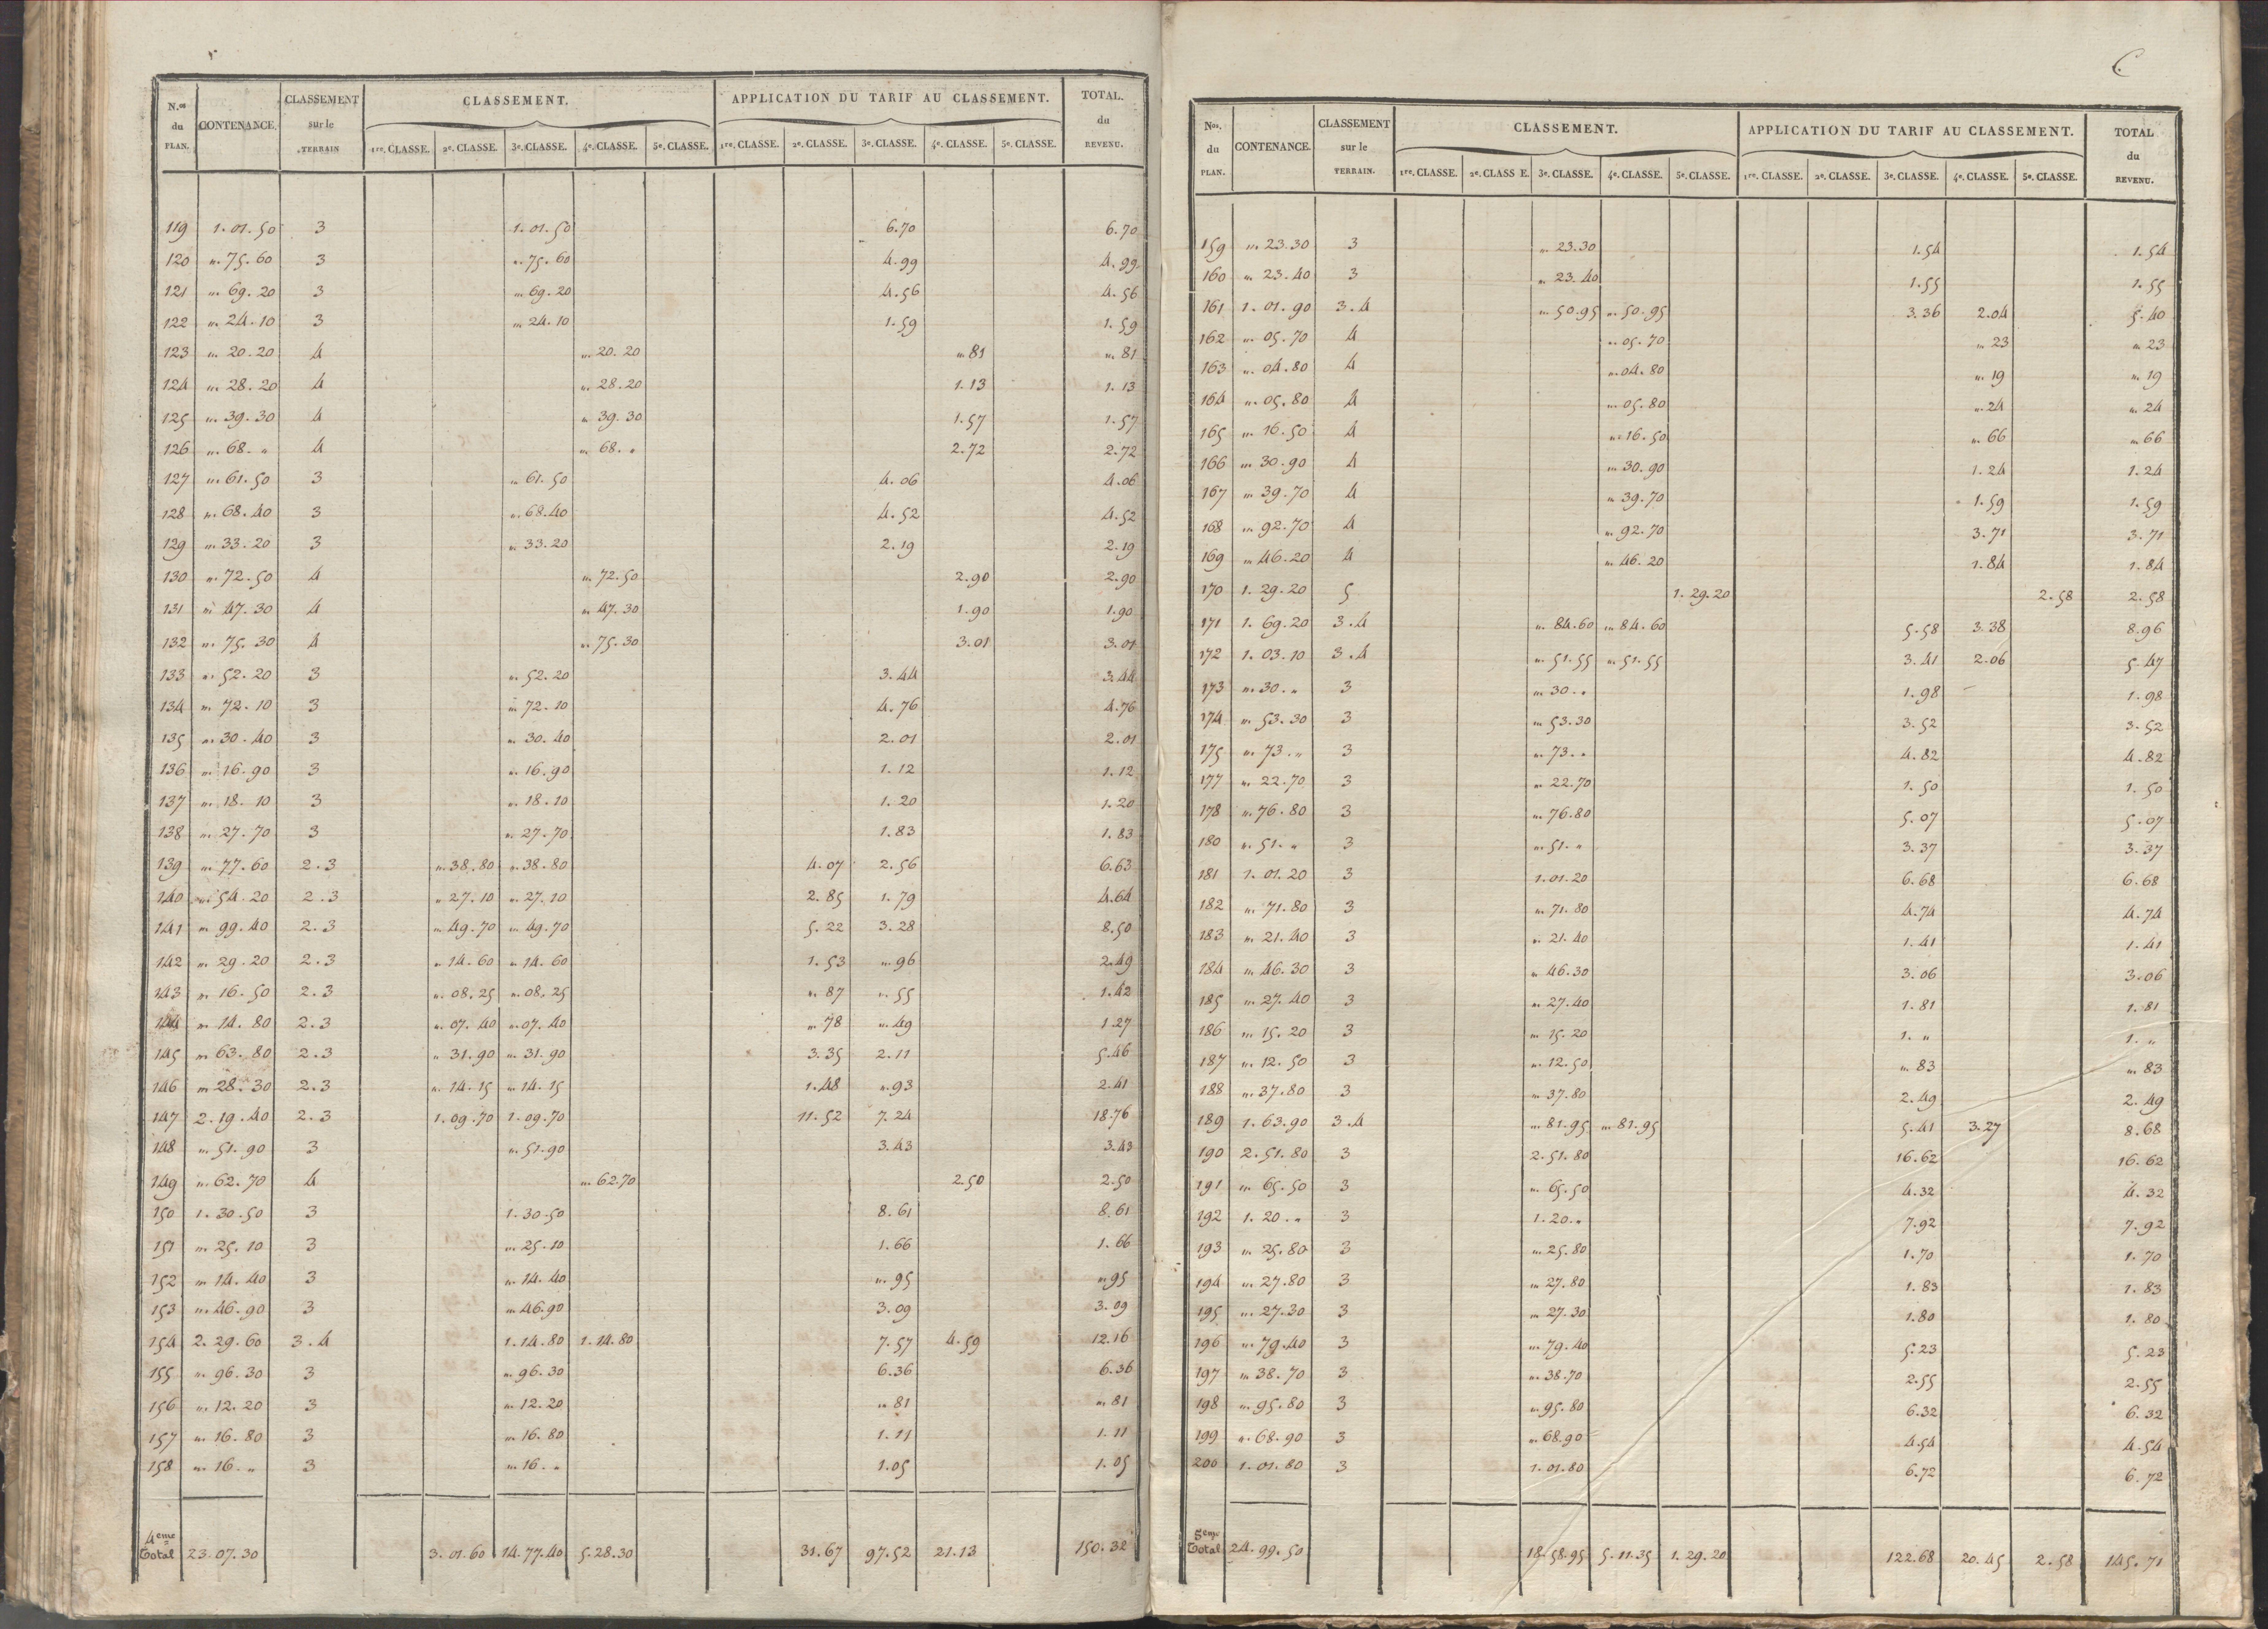 N.os du PLAN. CONTENANCE. CLASSEMENT sur le TERRAIN CLASSEMENT. APPLICATION DU TARIF AU CLASSEMENT. TOTAL. du REVENU.
1re. CLASSE. 2e. CLASSE. 3e. CLASSE. 4e. CLASSE. 5e. CLASSE. 1re. CLASSE. 2e. CLASSE. 3e. CLASSE. 4e. CLASSE. 5e. CLASSE.
119 1. 01. 50 3 1. 01. 50 6.70 6.70
120 ". 75. 60 3 ". 75. 60 4.99 4.99
121 ". 69. 20 3 ". 69. 20 4.56 4.56
122 ". 24. 10 3 ". 24. 10 1.59 1.59
123 ". 20. 20 4 ". 20. 20 ". 81 ". 81
124 ". 28. 20 4 ". 28. 20 1.13 1.13
125 ". 39. 30 4 ". 39. 30 1.57 1.57
126 ". 68. " 4 ". 68. " 2.72 2.72
127 ". 61. 50 3 ". 61. 50 4.06 4.06
128 ". 68. 40 3 ". 68. 40 4.52 4.52
129 ". 33. 20 3 ". 33. 20 2.19 2.19
130 ". 72. 50 4 ". 72. 50 2.90 2.90
131 ". 47. 30 4 ". 47. 30 1.90 1.90
132 ". 75. 30 4 ". 75. 30 3.01 3.01
133 ". 52. 20 3 ". 52. 20 3.44 3.44
134 ". 72. 10 3 ". 72. 10 4.76 4.76
135 ". 30. 40 3 ". 30. 40 2.01 2.01
136 ". 16. 90 3 ". 16. 90 1.12 1.12
137 ". 18. 10 3 ". 18. 10 1.20 1.20
138 ". 27. 70 3 ". 27. 70 1.83 1.83
139 ". 77. 60 2.3 ". 38. 80 ". 38. 80 4.07 2.56 6.63
140 ". 54. 20 2.3 ". 27. 10 ". 27. 10 2.85 1.79 4.64
141 ". 99. 40 2.3 ". 49. 70 ". 49. 70 5.22 3.28 8.50
142 ". 29. 20 2.3 ". 14. 60 ". 14. 60 1.53 ". 96 2.49
143 ". 16. 50 2.3 ". 08. 25 ". 08. 25 ". 87 ". 55 1.42
144 ". 14. 80 2.3 ". 07. 40 ". 07. 40 ". 78 ". 49 1.27
145 ". 63. 80 2.3 ". 31. 90 ". 31. 90 3.35 2.11 5.46
146 ". 28. 30 2.3 ". 14. 15 ". 14. 15 1.48 ". 93 2.41
147 2. 19. 40 2.3 1. 09. 70 1. 09. 70 11.52 7.24 18.76
148 ". 51. 90 3 ". 51. 90 3.43 3.43
149 ". 62. 70 4 ". 62. 70 2.50 2.50
150 1. 30. 50 3 1. 30. 50 8.61 8.61
151 ". 25. 10 3 ". 25. 10 1.66 1.66
152 ". 14. 40 3 ". 14. 40 ". 95 ". 95
153 ". 46. 90 3 ". 46. 90 3.09 3.09
154 2. 29. 60 3.4 1. 14. 80 1. 14. 80 7.57 4.59 12.16
155 ". 96. 30 3 ". 96. 30 6.36 6.36
156 ". 12. 20 3 ". 12. 20 ". 81 ". 81
157 ". 16. 80 3 ". 16. 80 1.11 1.11
158 ". 16. " 3 ". 16. " 1.05 1.05
4eme Total 23. 07. 30 3. 01. 60 14. 77. 40 5. 28. 30 31.67 97.52 21.13 150.32
C.
Nos. du PLAN. CONTENANCE. CLASSEMENT sur le TERRAIN. CLASSEMENT. APPLICATION DU TARIF AU CLASSEMENT. TOTAL du REVENU.
1re. CLASSE. 2e. CLASS E. 3e. CLASSE. 4e. CLASSE. 5e. CLASSE. 1re. CLASSE. 2e. CLASSE. 3e. CLASSE. 4e. CLASSE. 5e. CLASSE.
159 ". 23. 30 3 ". 23. 30 1.54 1.54
160 ". 23. 40 3 ". 23. 40 1.55 1.55
161 1. 01. 90 3.4 ". 50. 95 ". 50. 95 3.36 2.04 5.40
162 ". 05. 70 4 ". 05. 70 ". 23 ". 23
163 ". 04. 80 4 ". 04. 80 ". 19 ". 19
164 ". 05. 80 4 ". 05. 80 ". 24 ". 24
165 ". 16. 50 4 ". 16. 50 ". 66 ". 66
166 ". 30. 90 4 ". 30. 90 1.24 1.24
167 ". 39. 70 4 ". 39. 70 1.59 1.59
168 ". 92. 70 4 ". 92. 70 3.71 3.71
169 ". 46. 20 4 ". 46. 20 1.84 1.84
170 1. 29. 20 5 1. 29. 20 2.58 2.58
171 1. 69. 20 3.4 ". 84. 60 ". 84. 60 5.58 3.38 8.96
172 1. 03. 10 3.4 ". 51. 55 ". 51. 55 3.41 2.06 5.47
173 ". 30. " 3 ". 30. " 1.98 1.98
174 ". 53. 30 3 ". 53. 30 3.52 3.52
175 ". 73. " 3 ". 73. " 4.82 4.82
177 ". 22. 70 3 ". 22. 70 1.50 1.50
178 ". 76. 80 3 ". 76. 80 5.07 5.07
180 ". 51. " 3 ". 51. " 3.37 3.37
181 1. 01. 20 3 1. 01. 20 6.68 6.68
182 ". 71. 80 3 ". 71. 80 4.74 4.74
183 ". 21. 40 3 ". 21. 40 1.41 1.41
184 ". 46. 30 3 ". 46. 30 3.06 3.06
185 ". 27. 40 3 ". 27. 40 1.81 1.81
186 ". 15. 20 3 ". 15. 20 1. " 1. "
187 ". 12. 50 3 ". 12. 50 ". 83 ". 83
188 ". 37. 80 3 ". 37. 80 2.49 2.49
189 1. 63. 90 3.4 ". 81. 95 ". 81. 95 5.41 3.27 8.68
190 2. 51. 80 3 2. 51. 80 16.62 16.62
191 ". 65. 50 3 ". 65. 50 4.32 4.32
192 1. 20. " 3 1. 20. " 7.92 7.92
193 ". 25. 80 3 ". 25. 80 1.70 1.70
194 ". 27. 80 3 ". 27. 80 1.83 1.83
195 ". 27. 30 3 ". 27. 30 1.80 1.80
196 ". 79. 40 3 ". 79. 40 5.23 5.23
197 ". 38. 70 3 ". 38. 70 2.55 2.55
198 ". 95. 80 3 ". 95. 80 6.32 6.32
199 ". 68. 90 3 ". 68. 90 4.54 4.54
200 1. 01. 80 3 1. 01. 80 6.72 6.72
5eme Total 24. 99. 50 18. 58. 95 5. 11. 35 1. 29. 20 122.68 20.45 2.58 145.71